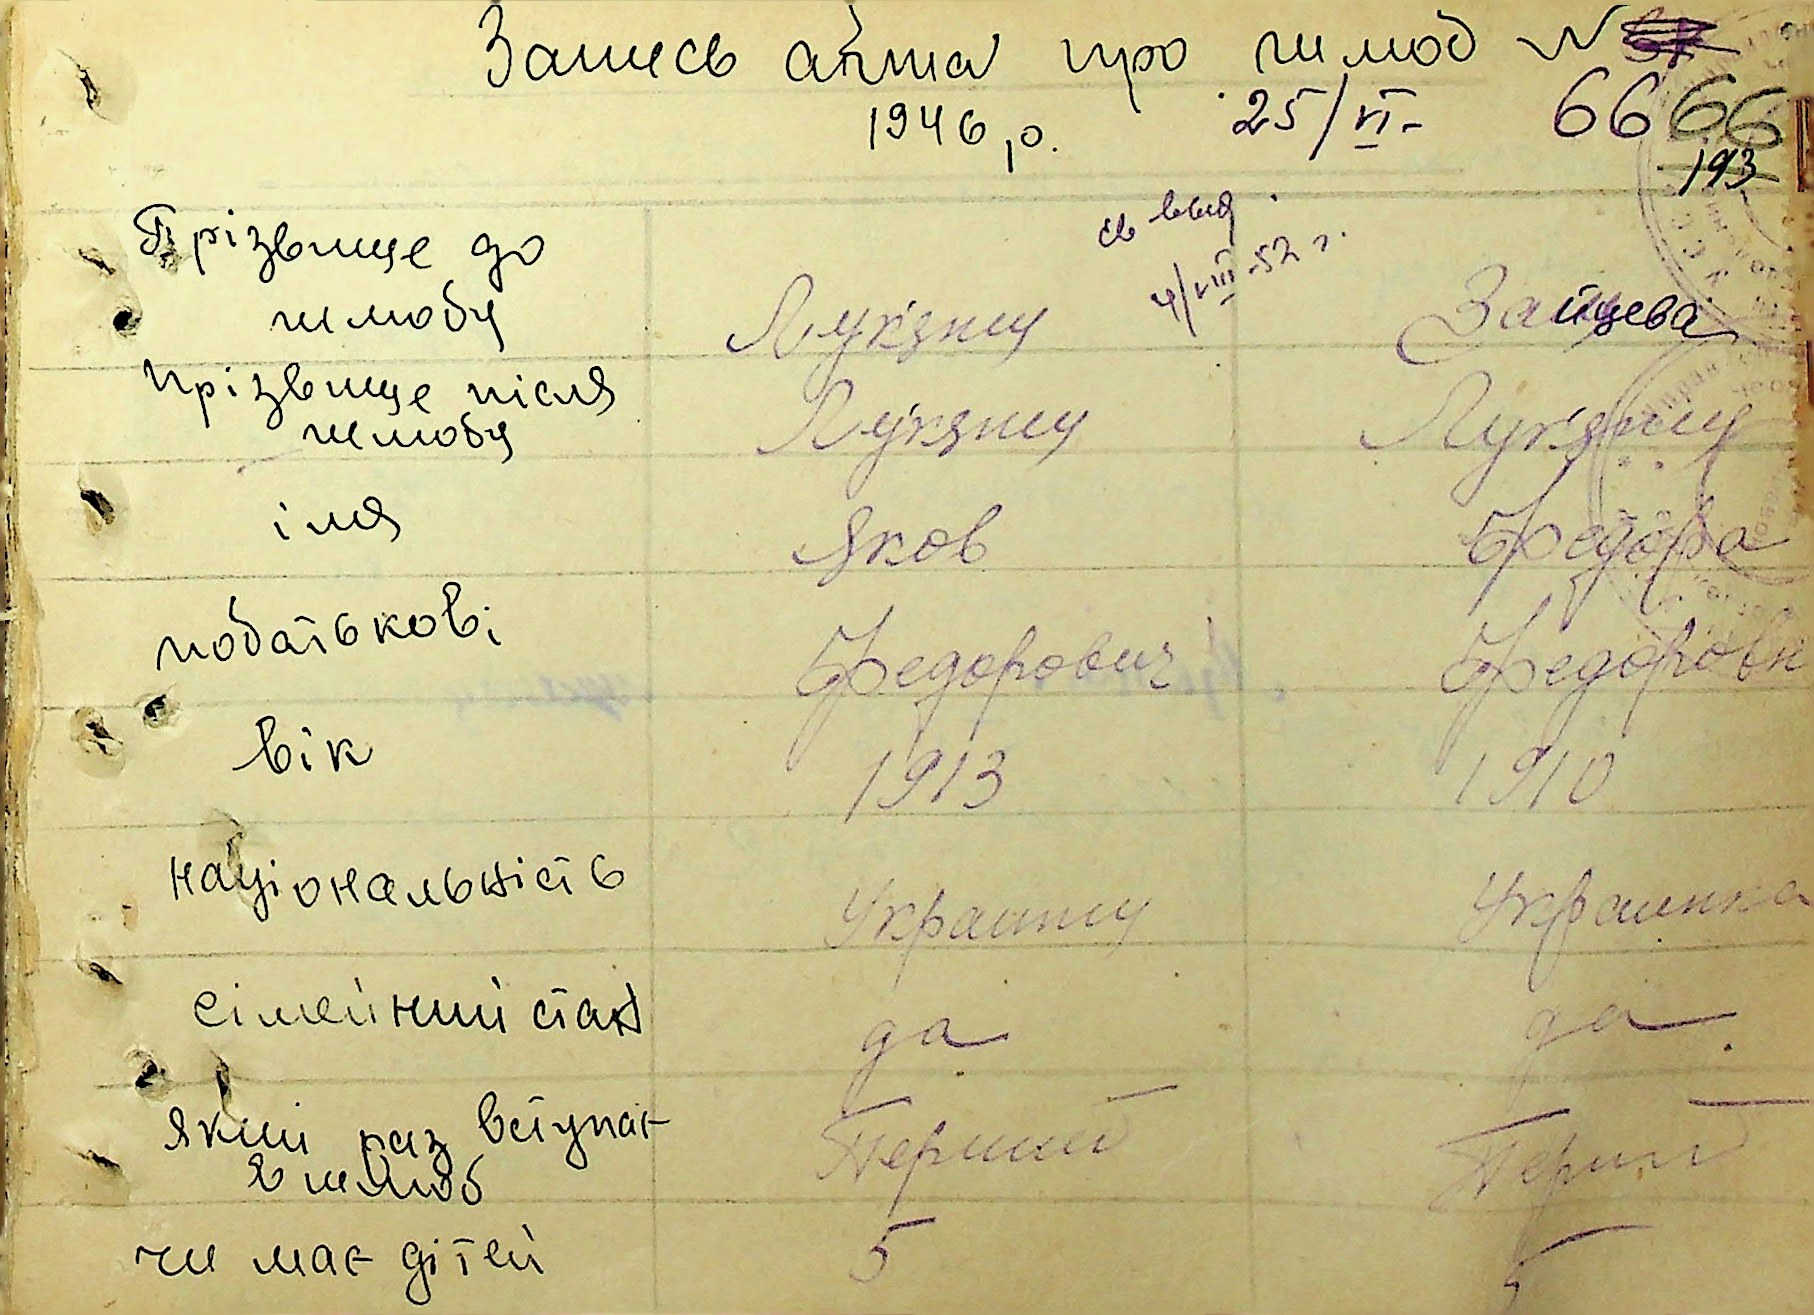 Запись акта про шлюб №
1946, р. 25/VI- 66 66
193
св выд.
4/VIII-52 г.
Прізвище до
шлюбу Лук'янец Зайцева
Прізвище після
шлюбу Лук'янец Лук'янец
імя Яков Федора
побатькові Федорович Федоровн
вік 1913 1910
національність Украинец Украинка
сімейний стан да да
який раз вступає
в шлюб Перший Перший
чи має дітей 5 5